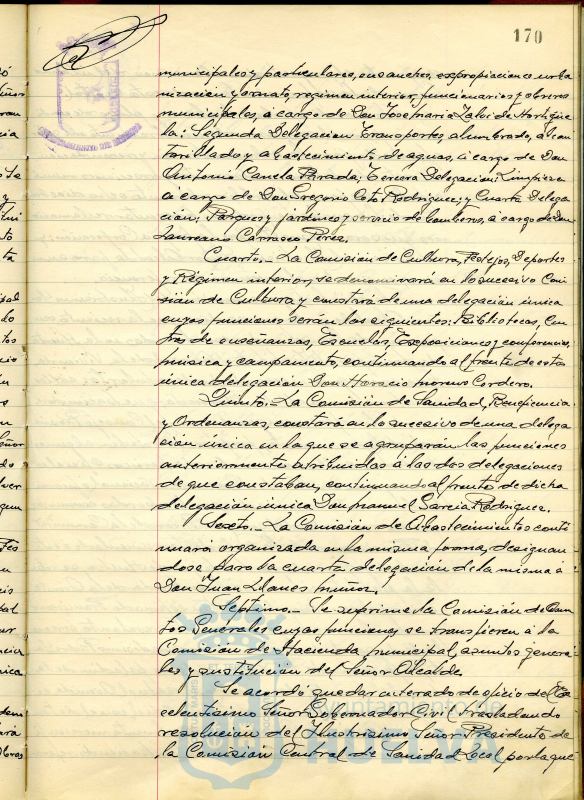 170
municipales y particulares, ensanches, expropiaciones urba
nización y ornato, regimen interior, funcionarios y obreros
municipales, á cargo de Don José María
la; Segunda Delegación Transportes, alumbrado, alcan
tarillado y abastecimiento de aguas, á cargo de Don
Antonio Canela Parada; Tercera Delegación: Limpieza
á cargo de Don Gregorio Coto Rodriguez; y Cuarta Delega
ción; Parques y jardines y servicio de bomberos, á cargo de Don
Laureano Carrasco Pérez.
Cuarto.- La Comisión de Cultura, Festejos, Deportes
y Régimen interior, se denominará en lo sucesivo Comi
sión de Cultura y constará de una delegación única
cuyas funciones serán las siguientes: Bibliotecas, Cen
tros de enseñanzas, Escuelas, Exposiciones y conferencias,
música y campamento, continuando al frente de esta
única delegación Don Horacio Moreno Cordero.
Quinto.- La Comisión de Sanidad, Beneficencia
y Ordenanzas, constará en lo sucesivo de una delega
ción única en la que se agruparán las funciones
anteriormente atribuidas á las dos delegaciones
de que constaban, continuando al frente de dicha
delegación única Don Manuel García Rodriguez.
Sexto.- La Comisión de Abastecimientos conti
nuará organizada en la misma forma, designan
dose para la cuarta delegación de la misma á
Don Juan Llanes Muñoz.
Septimo.- Se suprime la Comisión de Asun
tos Generales cuyas funciones se transfieren á la
Comisión de Hacienda municipal, asuntos genera
les y sustitución del Señor Alcalde.
Se acordó quedar enterado de oficio del Ex
celentísimo Señor Gobernador Civil trasladando
resolución del Ilustrísimo Señor Presidente de
la Comisión Central de Sanidad Local por la que
Ayuntamiento de
HUELVA